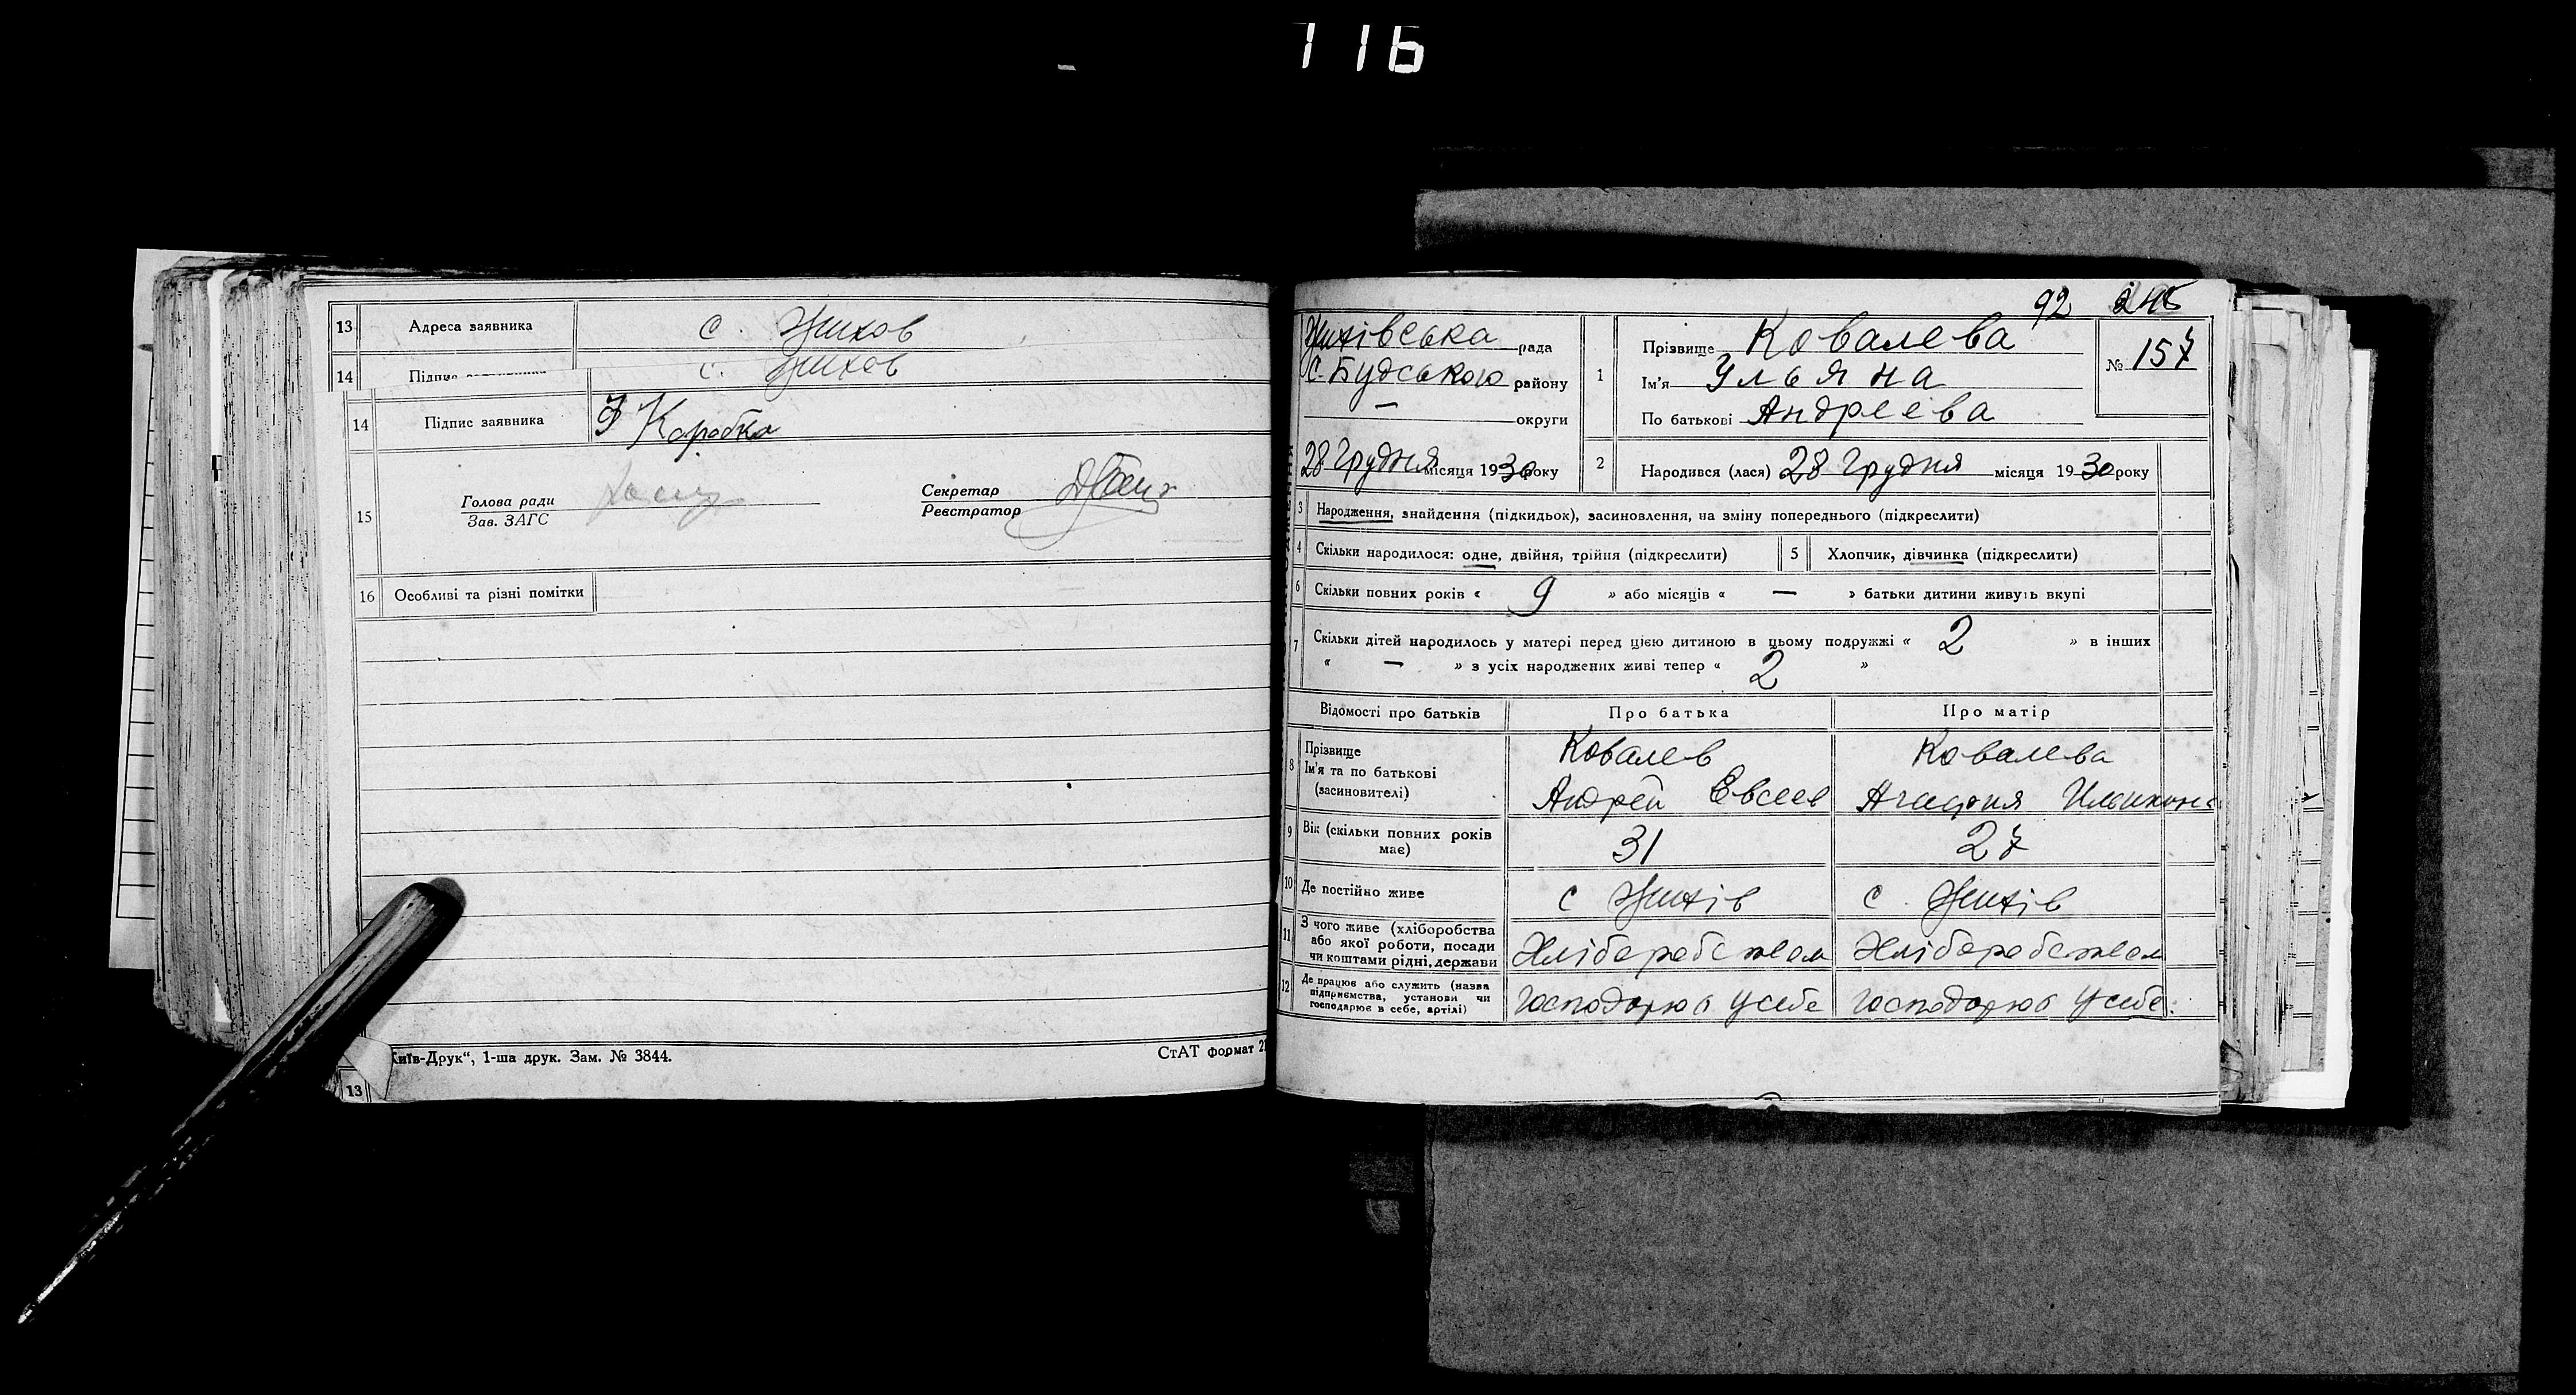 116
13 Адреса заявника с. Жихов
14 Підпис с. Жихов
14 Підпис заявника Коробка
15 Голова ради
Зав. ЗАГС
Секретар
Реєстратор
16 Особливі та різні помітки
Київ-Друк“, 1-ша друк. Зам. № 3844. СтАТ формат
13
92 245
Жихівська рада
С-Будського району
— округи
28 Грудня місяця 1930 року
1 Прізвище Ковалева
Ім'я Ульяна
По батькові Андреева
№ 157
2 Народився (лася) 28 Грудня місяця 1930 року
3 Народження, знайдення (підкидьок), засиновлення, на зміну попереднього (підкреслити)
4 Скільки народилося: одне, двійня, трійня (підкреслити)
5 Хлопчик, дівчинка (підкреслити)
6 Скільки повних років « 9 » або місяців « — » батьки дитини живуть вкупі
7 Скільки дітей народилось у матері перед цією дитиною в цьому подружжі « 2 » в інших
« — » з усіх народжених живі тепер « 2 »
Відомості про батьків Про батька Про матір
8 Прізвище
Ім'я та по батькові
(засиновителі)
Ковалев
Андрей Евсеев
Ковалева
Агафия
9 Вік (скільки повних років
має)
31 27
10 Де постійно живе с Жихів с. Жихів
11 З чого живе (хліборобства
або якої роботи, посади
чи коштами рідні, держави
Хлібаробством Хлібаробством
12 Де працює або служить (назва
підприємства, установи чи
господарює в себе, артілі)
Господорює у себе Господорює у себе